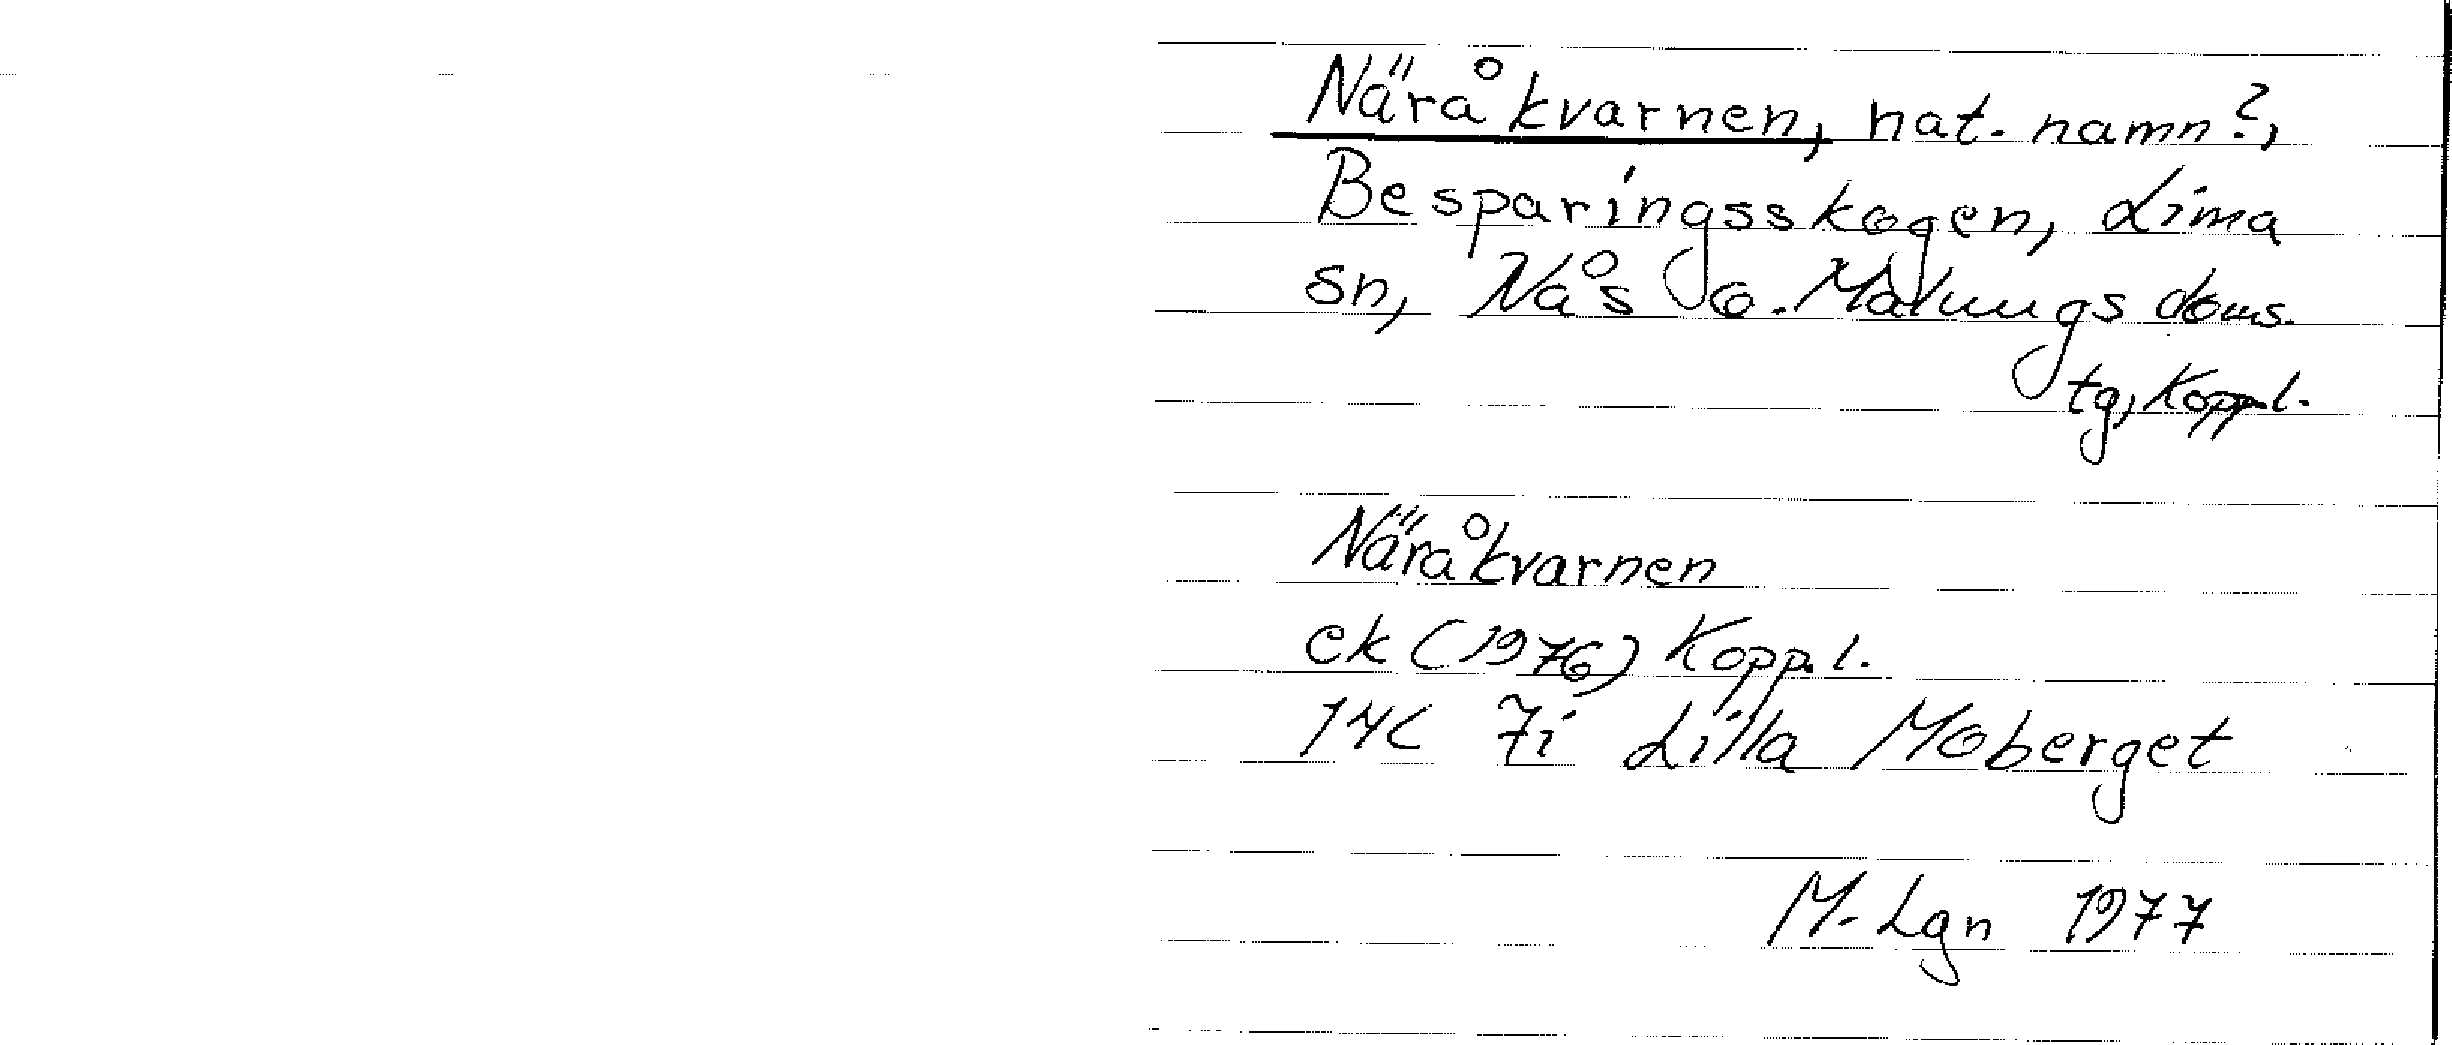 Näråkvarnen, nat. namn?,
Besparingsskogen, Lima
sn, Nås o. Malungs doms.
tg, Kopp.l.
Näråkvarnen
ek (1976) Kopp.l.
14C 7i Lilla Moberget
M-Lgn 1977